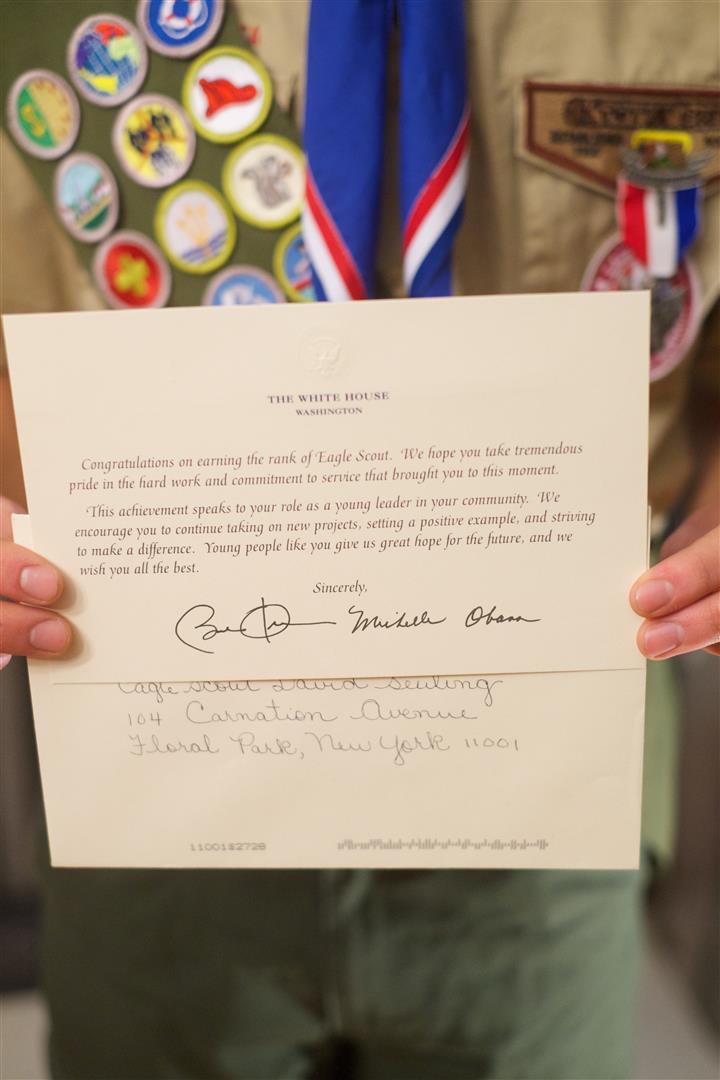 THE WHITE HOUSE
WASHINGTON
Congratulations on earning the rank of Eagle Scout. We hope you take tremendous
pride in the hard work and commitment to service that brought you to this moment.
This achievement speaks to your role as a young leader in your community. We
encourage you to continue taking on new projects, setting a positive example, and striving
to make a difference. Young people like you give us great hope for the future, and we
wish you all the best.
Sincerely,
Michelle Obama
Eagle Scout David Seuling
104 Carnation Avenue
Floral Park, New York 11001
11001$2728